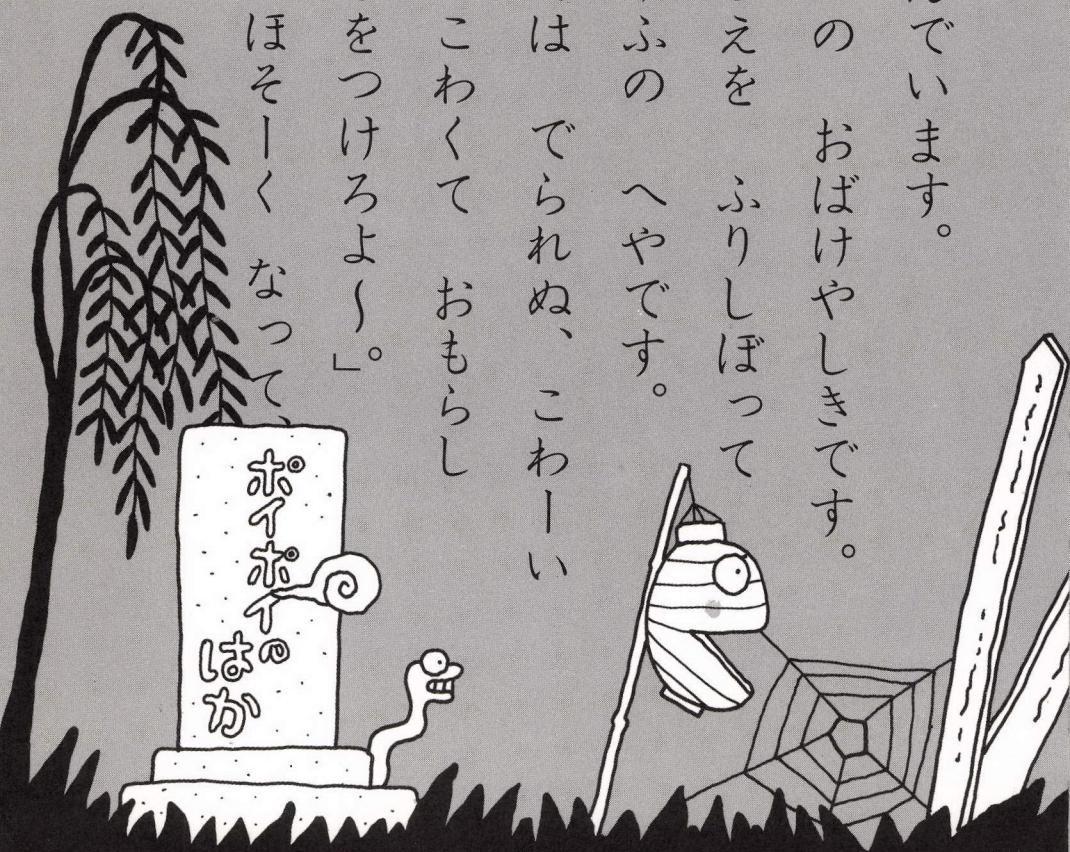 でいます。
の おばけやしきです。
えを ふりしぼって
ふの へやです。
は でられぬ、 こわーい
こわくて おもらし
をつけろよ～」。
ほそーく なって、
ポイポイの
はか